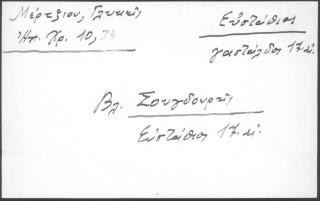 Μέρτζιου, Γλυκεῖς
Ἠπ. Χρ. 10, 34
Εὐστάθιος
γαστάλδος 17. αἰ.
Βλ. Σουγδουρῆς
Εὐστάθιος 17. αἰ.